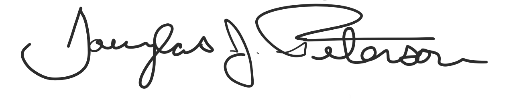 Douglas J. Peterson